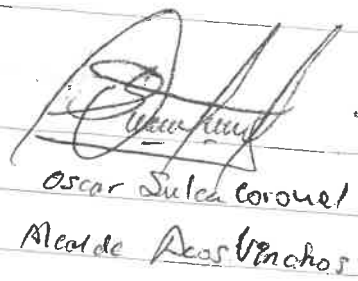 Oscar Sulca Coronel
Alcalde Acos Vinchos